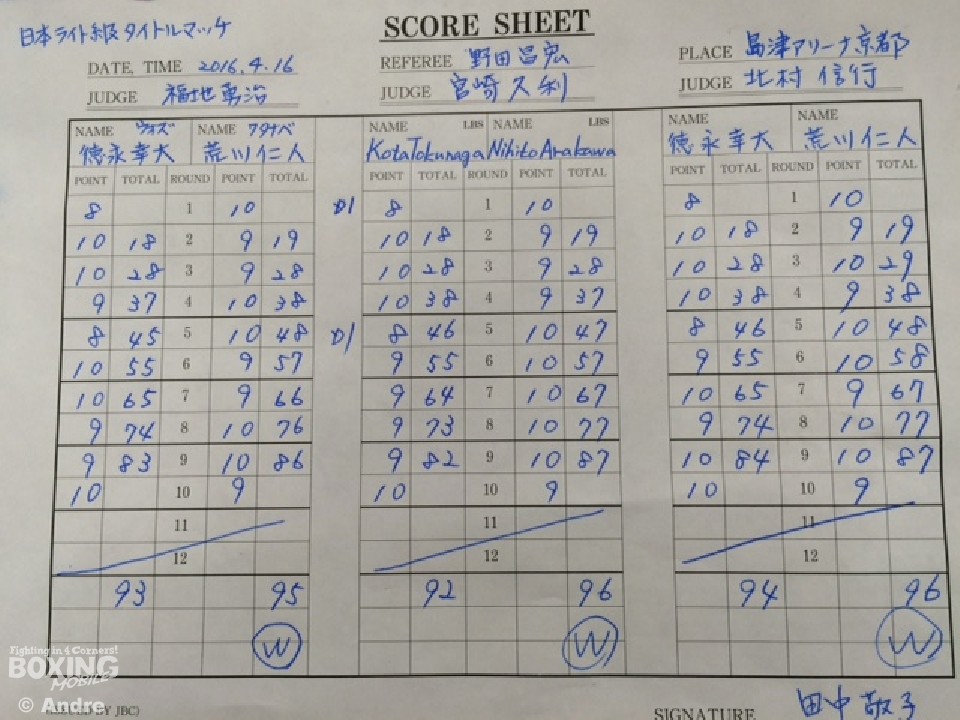 SCORE SHEET
日本ライト級タイトルマッチ
DATE, TIME 2016.4.16 REFEREE 野田昌宏 PLACE 島津アリーナ京都
JUDGE 福地勇治 JUDGE 宮崎久利 JUDGE 北村信行
NAME ウォズ NAME ワタナベ NAME LBS NAME LBS NAME NAME
徳永幸大 荒川仁人 Kota Tokunaga Nihito Arakawa 徳永幸大 荒川仁人
POINT TOTAL ROUND POINT TOTAL POINT TOTAL ROUND POINT TOTAL POINT TOTAL ROUND POINT TOTAL
8 1 10 D1 8 1 10 8 1 10
10 18 2 9 19 10 18 2 9 19 10 18 2 9 19
10 28 3 9 28 10 28 3 9 28 10 28 3 10 29
9 37 4 10 38 10 38 4 9 37 10 38 4 9 38
8 45 5 10 48 D1 8 46 5 10 47 8 46 5 10 48
10 55 6 9 57 9 55 6 10 57 9 55 6 10 58
10 65 7 9 66 9 64 7 10 67 10 65 7 9 67
9 74 8 10 76 9 73 8 10 77 9 74 8 10 77
9 83 9 10 86 9 82 9 10 87 10 84 9 10 87
10 10 9 10 10 9 10 10 9
11 11 11
12 12 12
93 95 92 96 94 96
W W W
Fighting in 4 Corners!
BOXING
MOBILE
© Andre
BY JBC) SIGNATURE 田中敬子